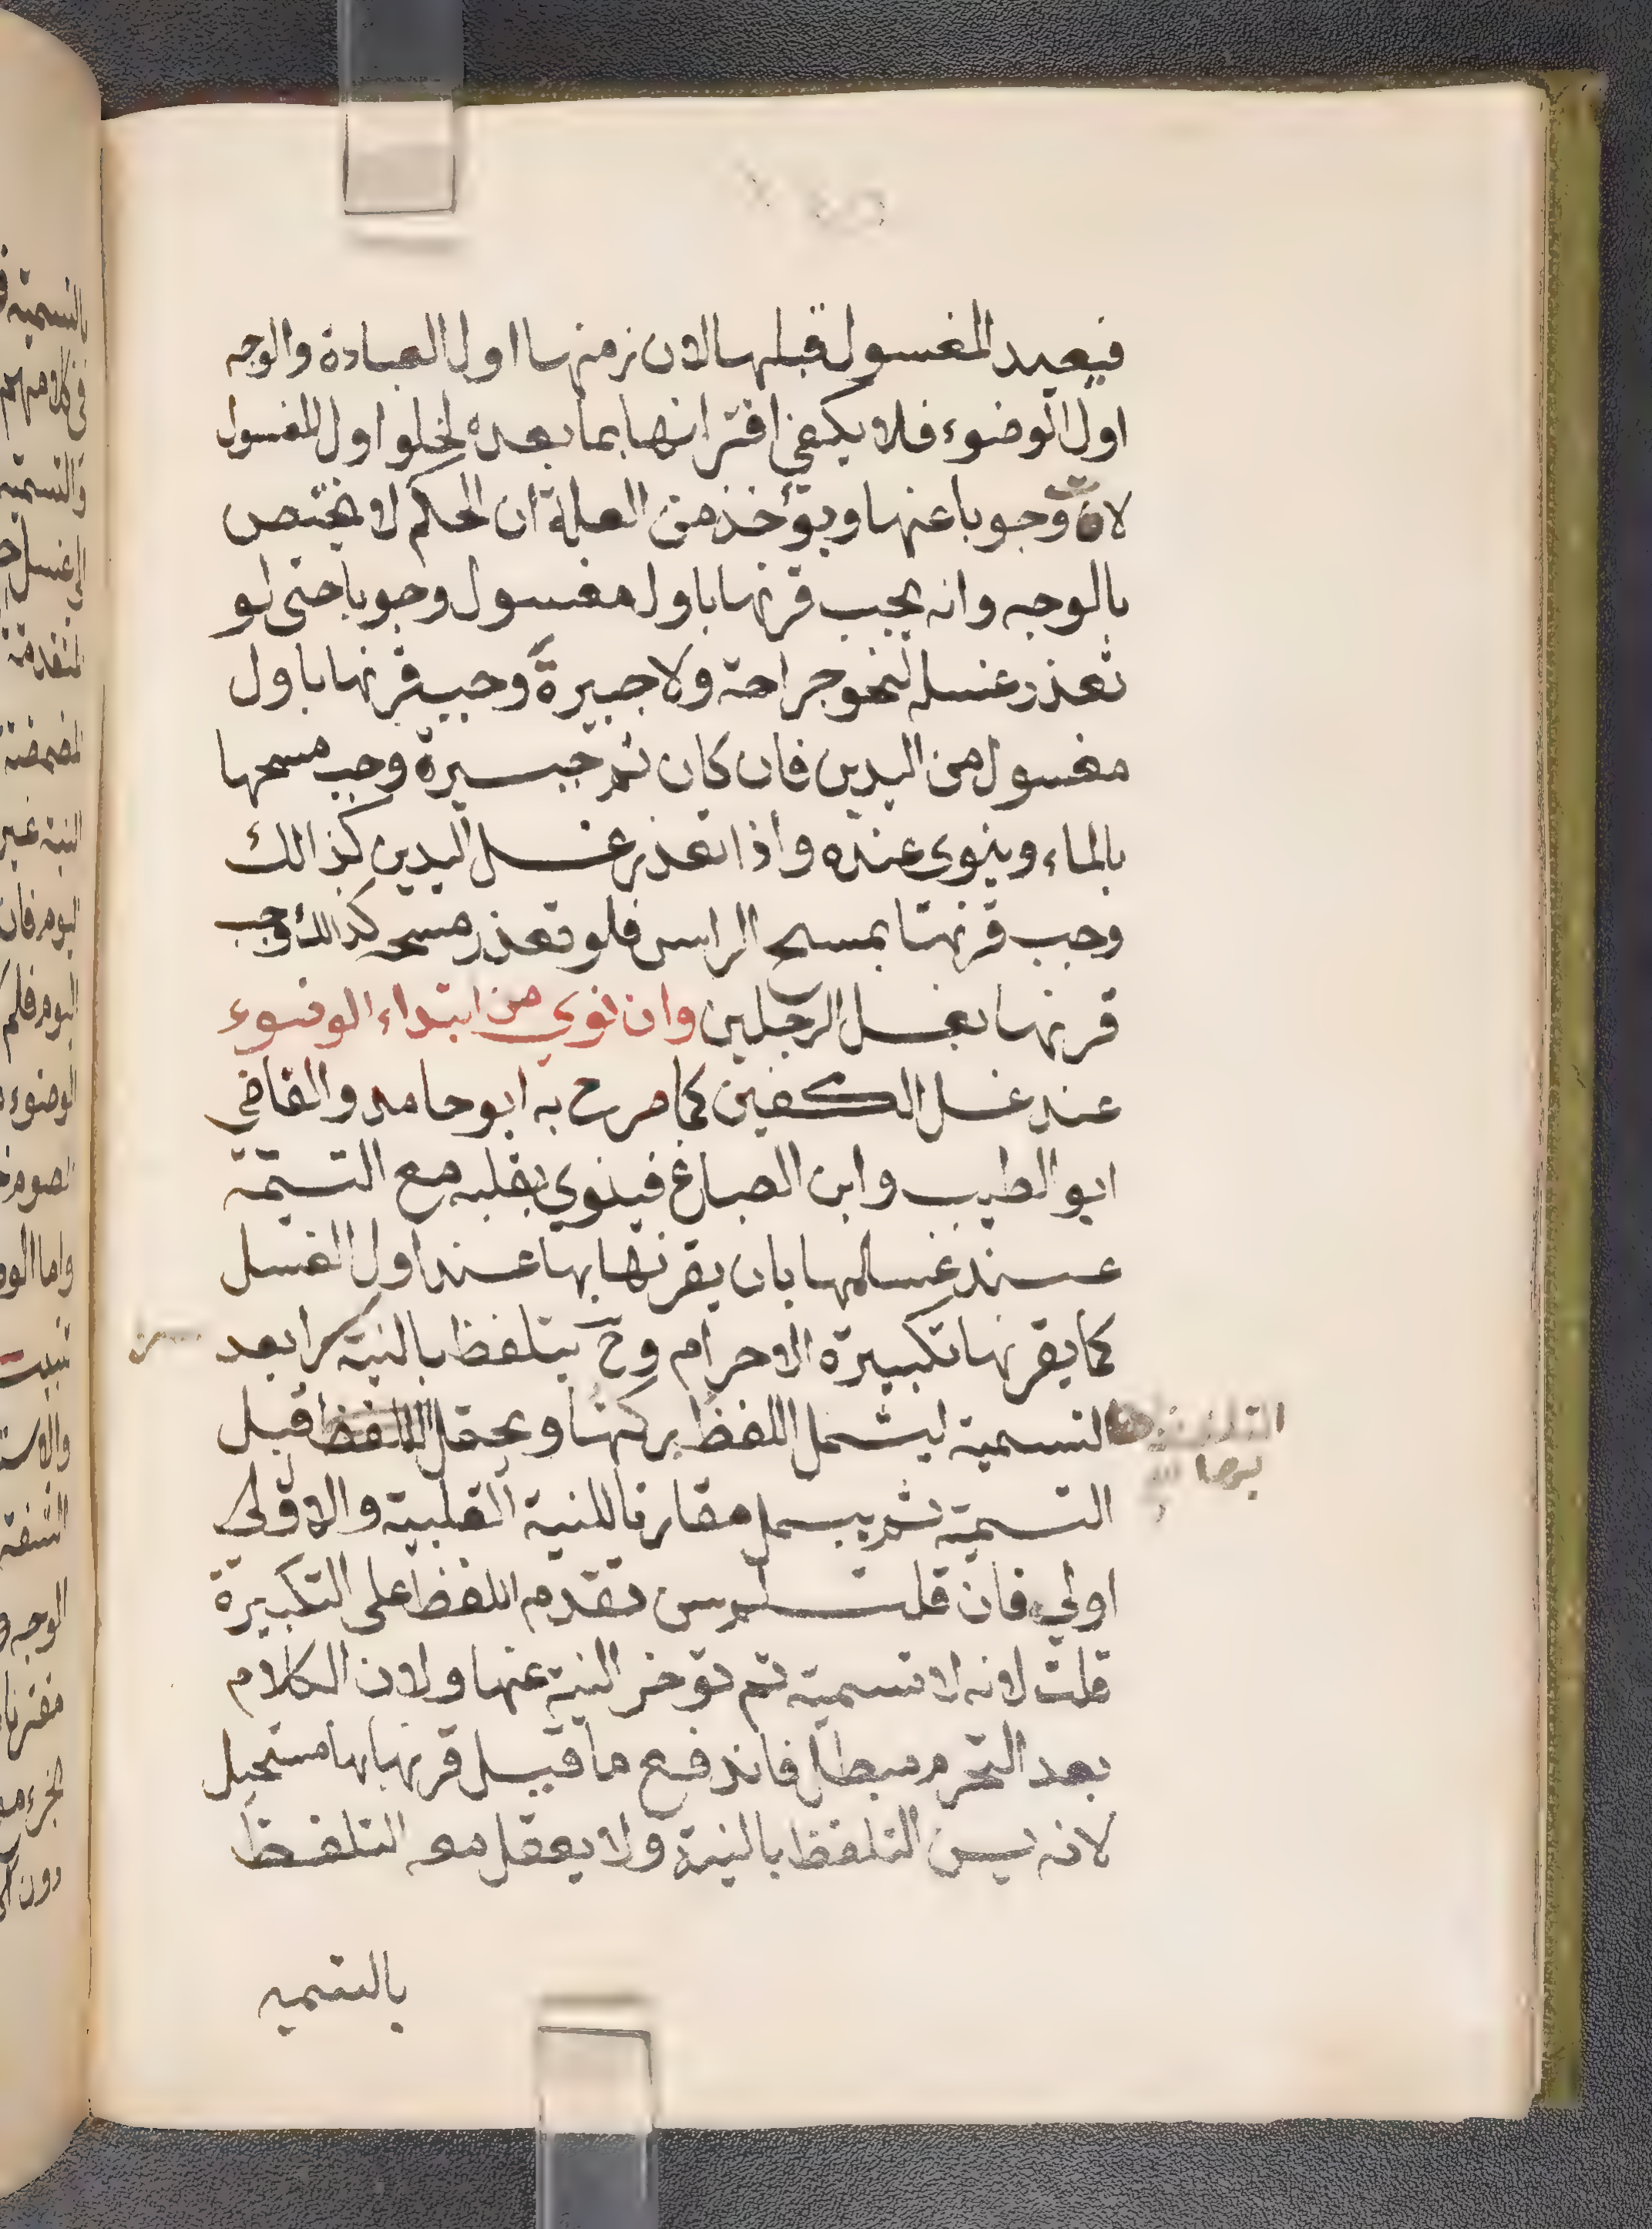 فيعيد المغسول قبلها لان زمنها اول العبادة والوجه
اول الوضوء فلا يكفي اقترانها بما بعده لخلو اول المغسول
لان وجوبا عنها ويؤخذ من العلة ان الحكم لا يختص
بالوجه وانه يجب قرنها باول مغسول وجوبا حتى لو
تعذر غسله لنحو جراحة ولا جبيرة وجب قرنها باول
مغسول من اليدين فان كان ثم جبيرة وجب مسحها
بالماء وينوي عنده واذا تعذر غسل اليدين كذالك
وجب قرنها بمسح الراس فلو تعذر مسحه كذالك وجب
قرنها بغسل الرجلين وان نوي من ابتداء الوضوء
عند غسل الكفين كما صرح به ابو حامد والقاضي
ابو الطيب وابن الصباغ فينوي بقلبه مع التسمية
عند غسلهما بان يقرنها بها عند اول الغسل
كما يقرنها تكبيرة الاحرام وح يتلفظ بالنية سرا بعد
التسمية ليشمل اللفظ بركتها ويحتمل اللفظ قبل
التسمية ثم يبسمل مقارنا للنية القلبية والاولى
اولي فان قلت لم سن تقدم اللفظ على التكبيرة
قلت لانه لا تسمية ثم تؤخر النية عنها ولان الكلام
بعد التحرم مبطل فاندفع ما قيل قرنها بها مستحيل
لانه يسن التلفظ بالنية ولا يعقل معه التلفظ
بالتسميه